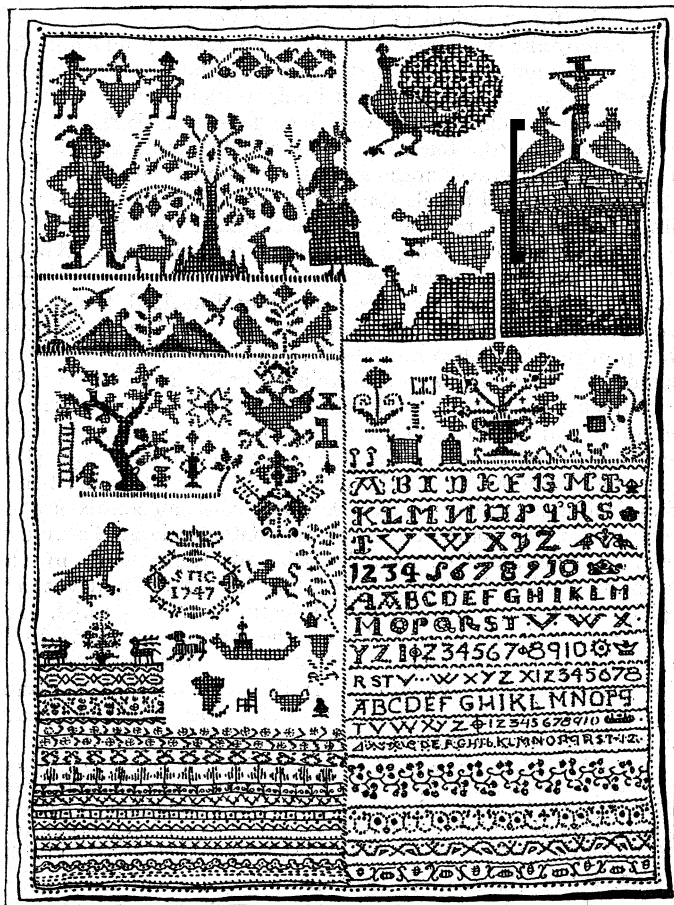 STIC
1747
A B I D E F G M I
K L M N O P Y R S
T V W X Y Z
1 2 3 4 5 6 7 8 9 10
A A B C D E F G H I K L M
M O P Q R S T V W X
Y Z 1 2 3 4 5 6 7 8 9 10
R S T V W X Y Z X I Z 3 4 5 6 7 8
A B C D E F G H I K L M N O P q
T V W X Y Z 1 2 3 4 5 6 7 8 9 10
C D E F G H I K L M N O P Q R S T